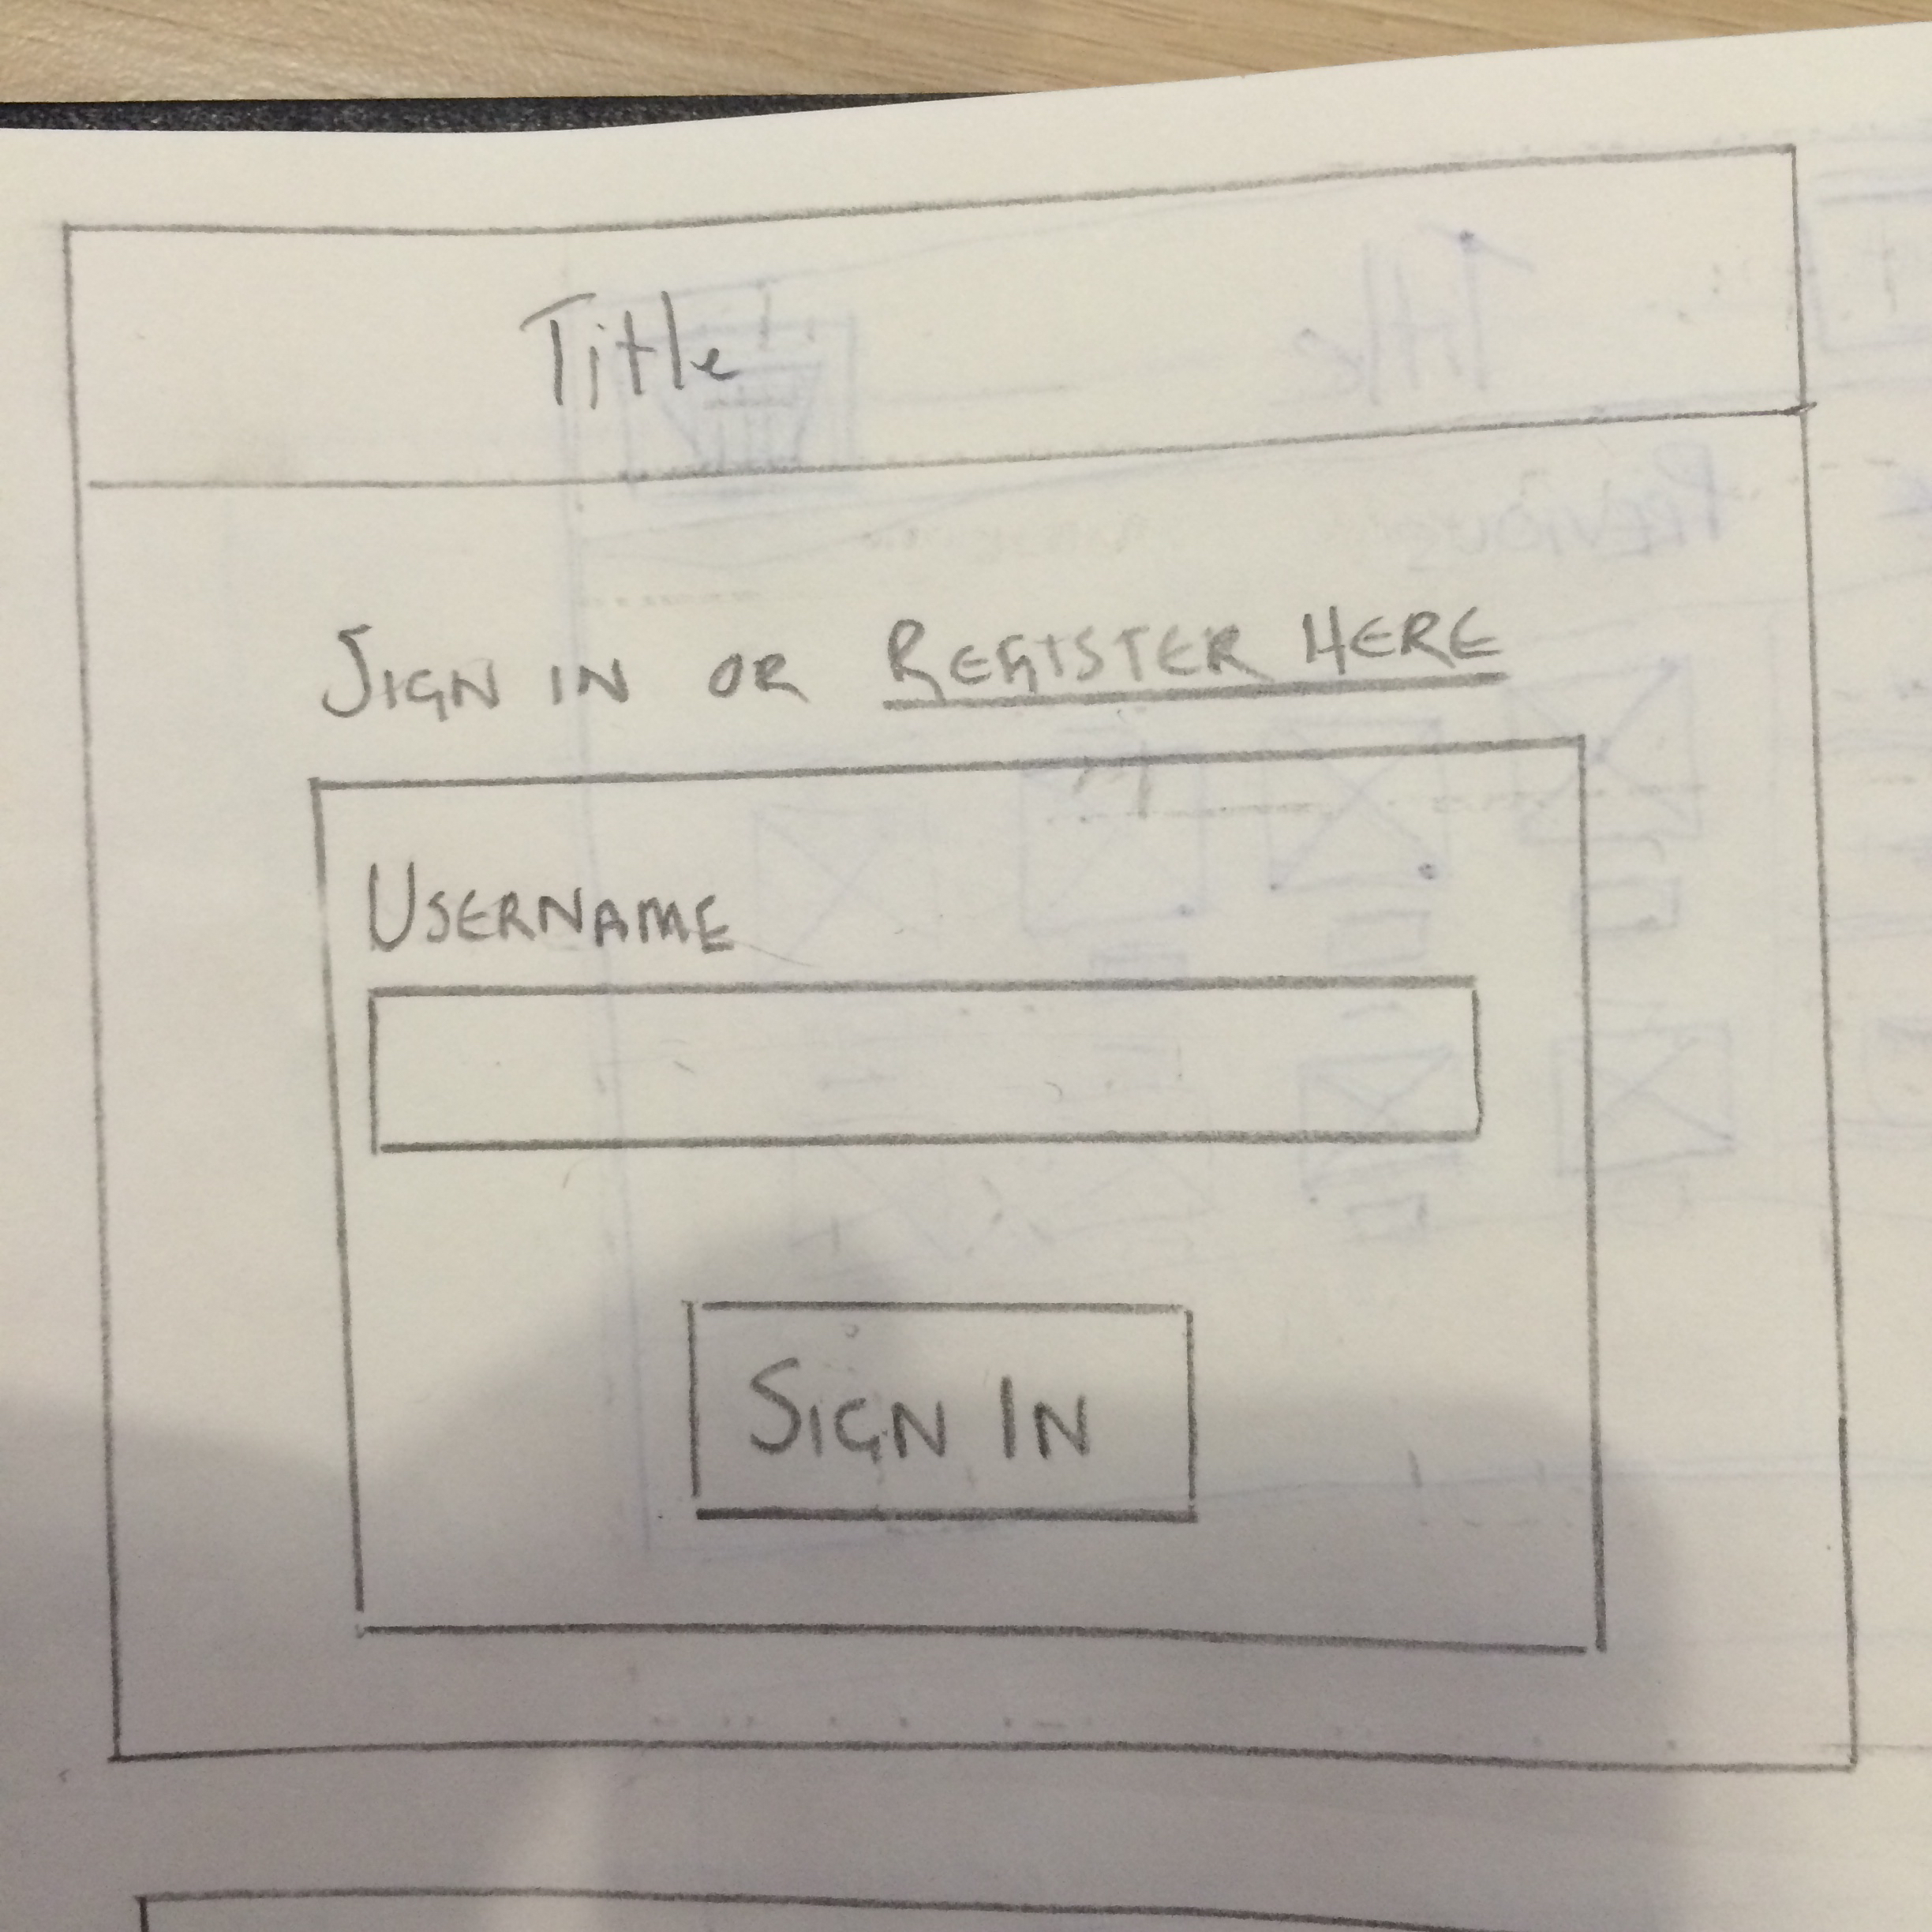 Title
SIGN IN OR REGISTER HERE
USERNAME
SIGN IN